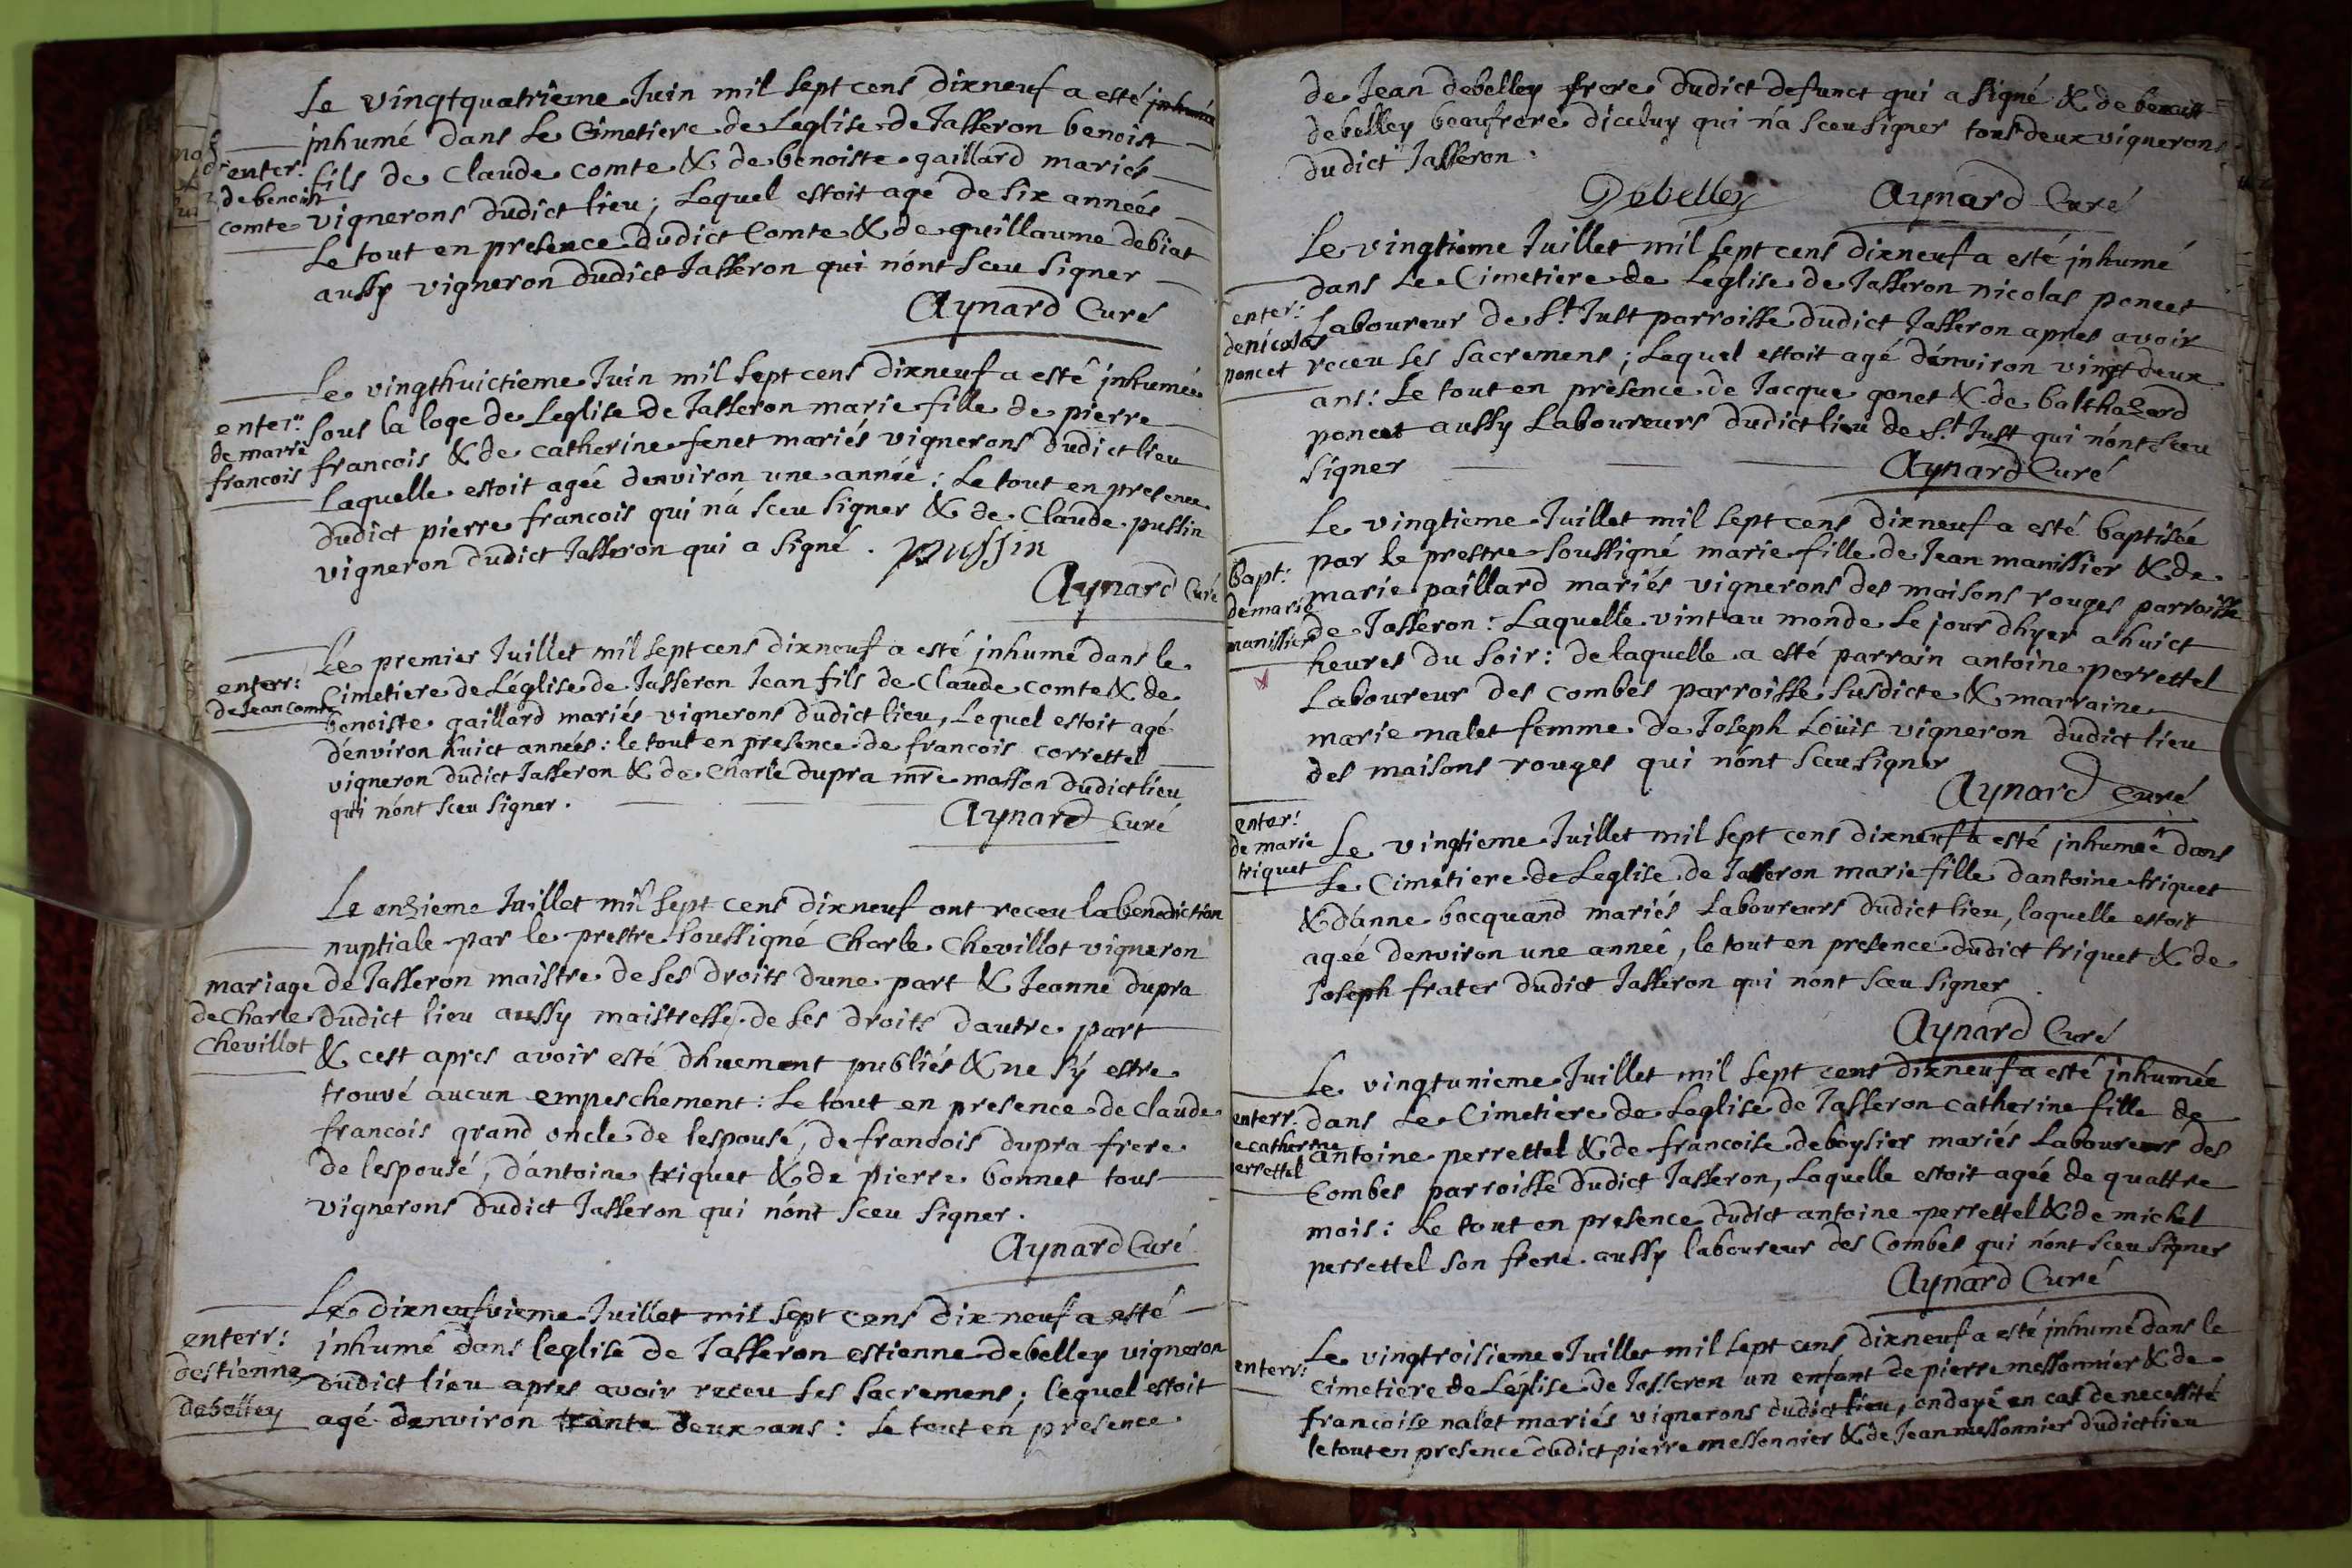 Le vingtquatrieme Juin mil sept cens dixneuf a esté
inhumé dans le Cimetiere de Leglise de Jasseron benoist
enter:
de benoist
comte
fils de Claude comte & de benoiste gaillard mariés
vignerons dudict lieu; Lequel estoit agé de six années
Le tout en presence dudict Comte & de guillaume debiat
aussy vigneron dudict Jasseron qui nónt sceu signer
Aynard Curé
Le vingthuictieme Juin mil sept cens dixneuf a esté inhumée
enter:
de marie
francois
sous la loge de Leglise de Jasseron marie fille de pierre
francois & de catherine fenet mariés vignerons dudict lieu
Laquelle estoit agée denviron une année: Le tout en presence
dudict pierre francois qui ná sceu signer & de Claude pussin
vigneron dudict Jasseron qui a signé. pussin
Aynard Curé
Le premier Juillet mil sept cens dixneuf a esté inhumé dans le
enterr:
de Jean comte
Cimetiere de Léglise de Jasseron Jean fils de Claude comte & de
benoiste gaillard mariés vignerons dudict lieu, Lequel estoit agé
dénviron huict années: le tout en presence de francois correttel
vigneron dudict Jasseron & de Charle dupra mre masson dudict lieu
qui nónt sceu signer.
Aynard Curé
Le onzieme Juillet mil sept cens dixneuf ont receu la benediction
nuptiale par le prestre soussigné Charle Chevillot vigneron
mariage
de Charle
Chevillot
de Jasseron maistre de ses droits dune part & Jeanne dupra
dudict lieu aussy maistresse de ses droits dautre part
& cest apres avoir esté dhuement publiés & ne sý estre
trouvé aucun empeschement: Le tout en presence de Claude
francois grand oncle de lespousé, de francois dupra frere
de lespousé, dántoine triquet & de pierre bonnet tous
vignerons dudict Jasseron qui nónt sceu signer.
Aynard Curé
Le dixneufvieme Juillet mil sept cens dixneuf a esté
enterr:
destienne
debelley
inhumé dans leglise de Jasseron estienne debelley vigneron
dudict lieu apres avoir receu ses sacremens; lequel estoit
agé denviron trante deux ans: Le tout en presence
de Jean debelley frere dudict defunct qui a signé & de benoist
debelley beaufrere diceluy qui ná sceu signer tous deux vignerons
dudict Jasseron.
Debelley Aynard Curé
Le vingtieme Juillet mil sept cens dixneuf a esté inhumé
dans le Cimetiere de Leglise de Jasseron nicolas poncet
enter:
de nicolas
poncet
Laboureur de St Just parroisse dudict Jasseron apres avoir
receu ses sacremens; Lequel estoit agé dénviron vingt deux
ans: Le tout en presence de Jacque gonet & de balthazard
poncet aussy Laboureurs dudict lieu de St Just qui nónt sceu
signer
Aynard Curé
Le vingtieme Juillet mil sept cens dixneuf a esté baptisée
bapt:
de marie
manissier
par le prestre soussigné marie fille de Jean manissier & de
marie paillard mariés vignerons des maisons rouges parroisse
de Jasseron: Laquelle vint au monde le jour dhyer a huict
heures du soir: de laquelle a esté parrain antoine perrettel
Laboureur des combes parroisse susdicte & marraine
marie nalet femme de Joseph Loüis vigneron dudict lieu
des maisons rouges qui nónt sceu signer
Aynard Curé
enter:
de marie
triquet
Le vingtieme Juillet mil sept cens dixneuf a esté inhumée dans
Le Cimetiere de Leglise de Jasseron marie fille dantoine triquet
& dánne bocquand mariés Laboureurs dudict lieu, laquelle estoit
agée denviron une année, le tout en presence dudict triquet & de
Joseph frater dudict Jasseron qui nónt sceu signer
Aynard Curé
Le vingtunieme Juillet mil sept cens dixneuf a esté inhumée
enterr:
de catherine
perrettel
dans le Cimetiere de Leglise de Jasseron catherine fille de
antoine perrettel & de francoise deboysier mariés Laboureurs des
Combes parroisse dudict Jasseron, Laquelle estoit agée de quattre
mois: Le tout en presence dudict antoine perrettel & de michel
perrettel son frere aussy laboureur des Combes qui nónt sceu signer
Aynard Curé
Le vingtroisieme Juillet mil sept cens dixneuf a esté inhumé dans le
enterr:
cimetiere de Léglise de Jasseron un enfant de pierre messonnier & de
francoise nalet mariés vignerons dudict lieu, ondoyé en cas de necessité
le tout en presence dudict pierre messonnier & de Jean messonnier dudict lieu